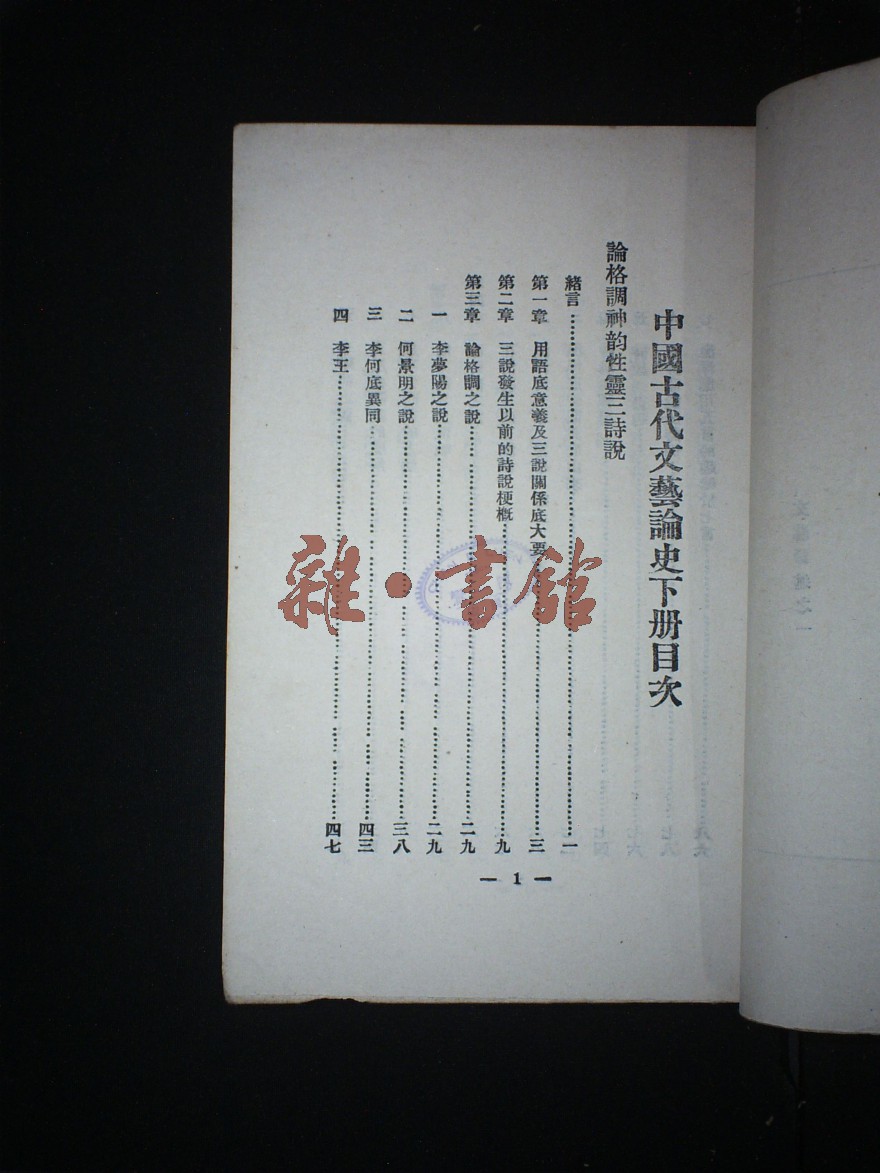 中國古代文藝論史下册目次
論格調神韵性靈三詩說
緒言……一
第一章　用語底意義及三說關係底大要……三
第二章　三說發生以前的詩說梗概……九
第三章　論格調之說……二九
一　李夢陽之說……二九
二　何景明之說……三八
三　李何底異同……四三
四　李王……四七
— 1 —
雜·書館